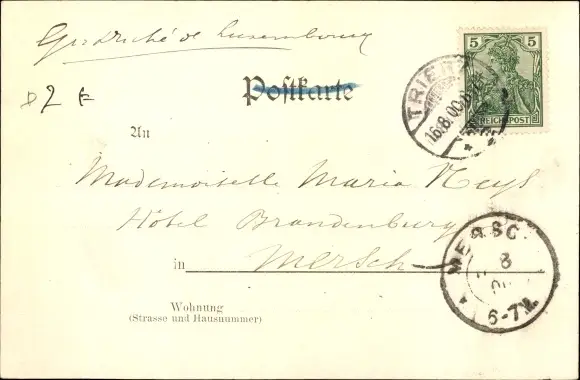 Grd Duché de Luxembourg
5 5
REICHSPOST
TRIER
16.8.00.
Postkarte
2
An
Mademoiselle Maria Neys
Hôtel Brandenburg
in Mersch
MERSC
8
6-7N.
Wohnung
(Strasse und Hausnummer)